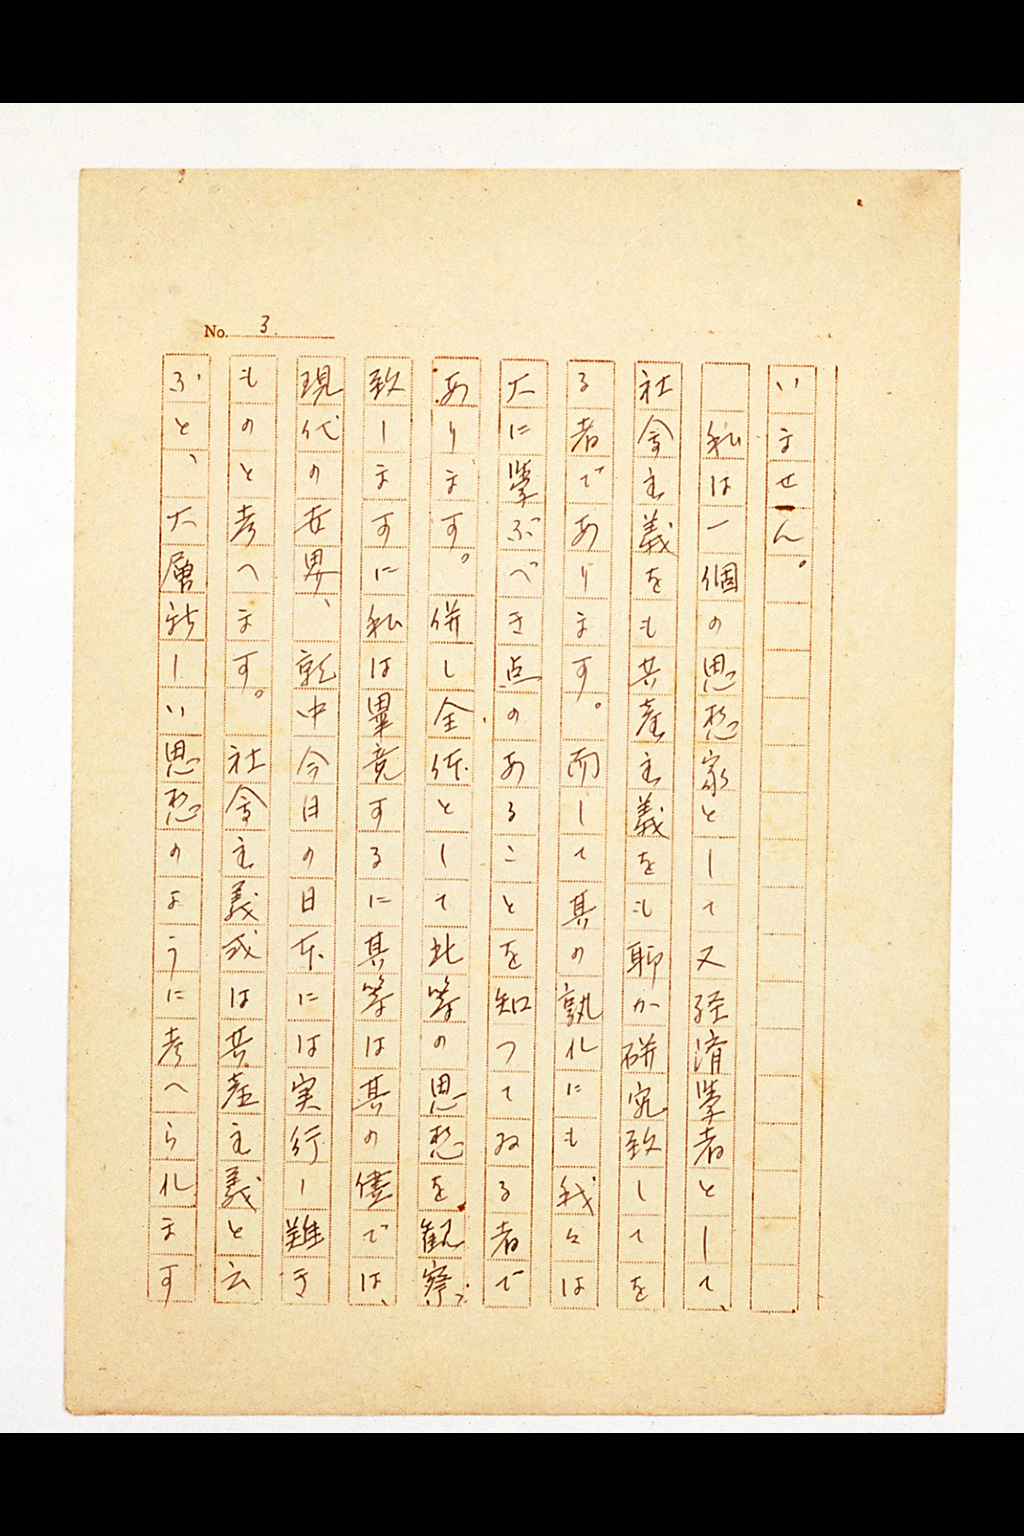 No. 3.
いません。
私は一個の思想家として又経済学者として、
社会主義をも共産主義をも聊か研究致してを
る者であります。而して其の孰れにも我々は
大に学ぶべき点のあることを知つてゐる者で
あります。併し全体として此等の思想を観察
致しますに私は畢竟するに其等は其の儘では、
現代の世界、就中今日の日本には実行し難き
ものと考へます。社会主義或は共産主義と云
ふと、大層新しい思想のように考へられます